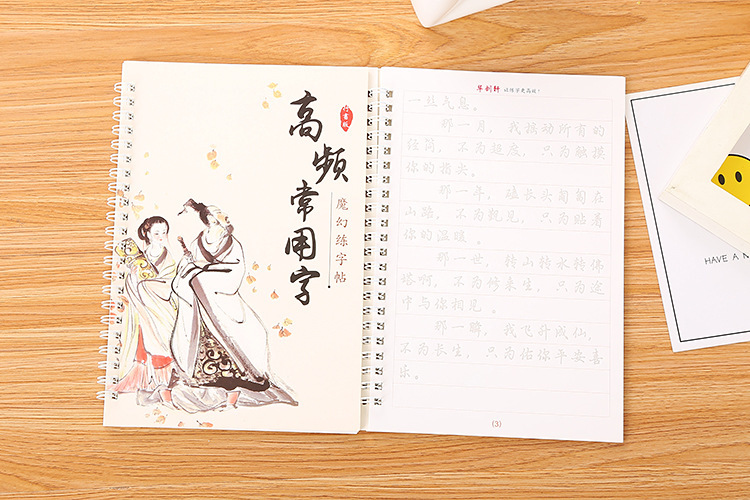 高频常用字
魔幻练字帖
行书版
华剑轩 让练字更高效!
一丝气息。
那一月，我摇动所有的
经筒，不为超度，只为触摸
你的指尖。
那一年，磕长头匍匐在
山路，不为觐见，只为贴着
你的温暖。
那一世，转山转水转佛
塔啊，不为修来生，只为途
中与你相见。
那一瞬，我飞升成仙，
不为长生，只为佑你平安喜
乐。
(3)
HAVE A N